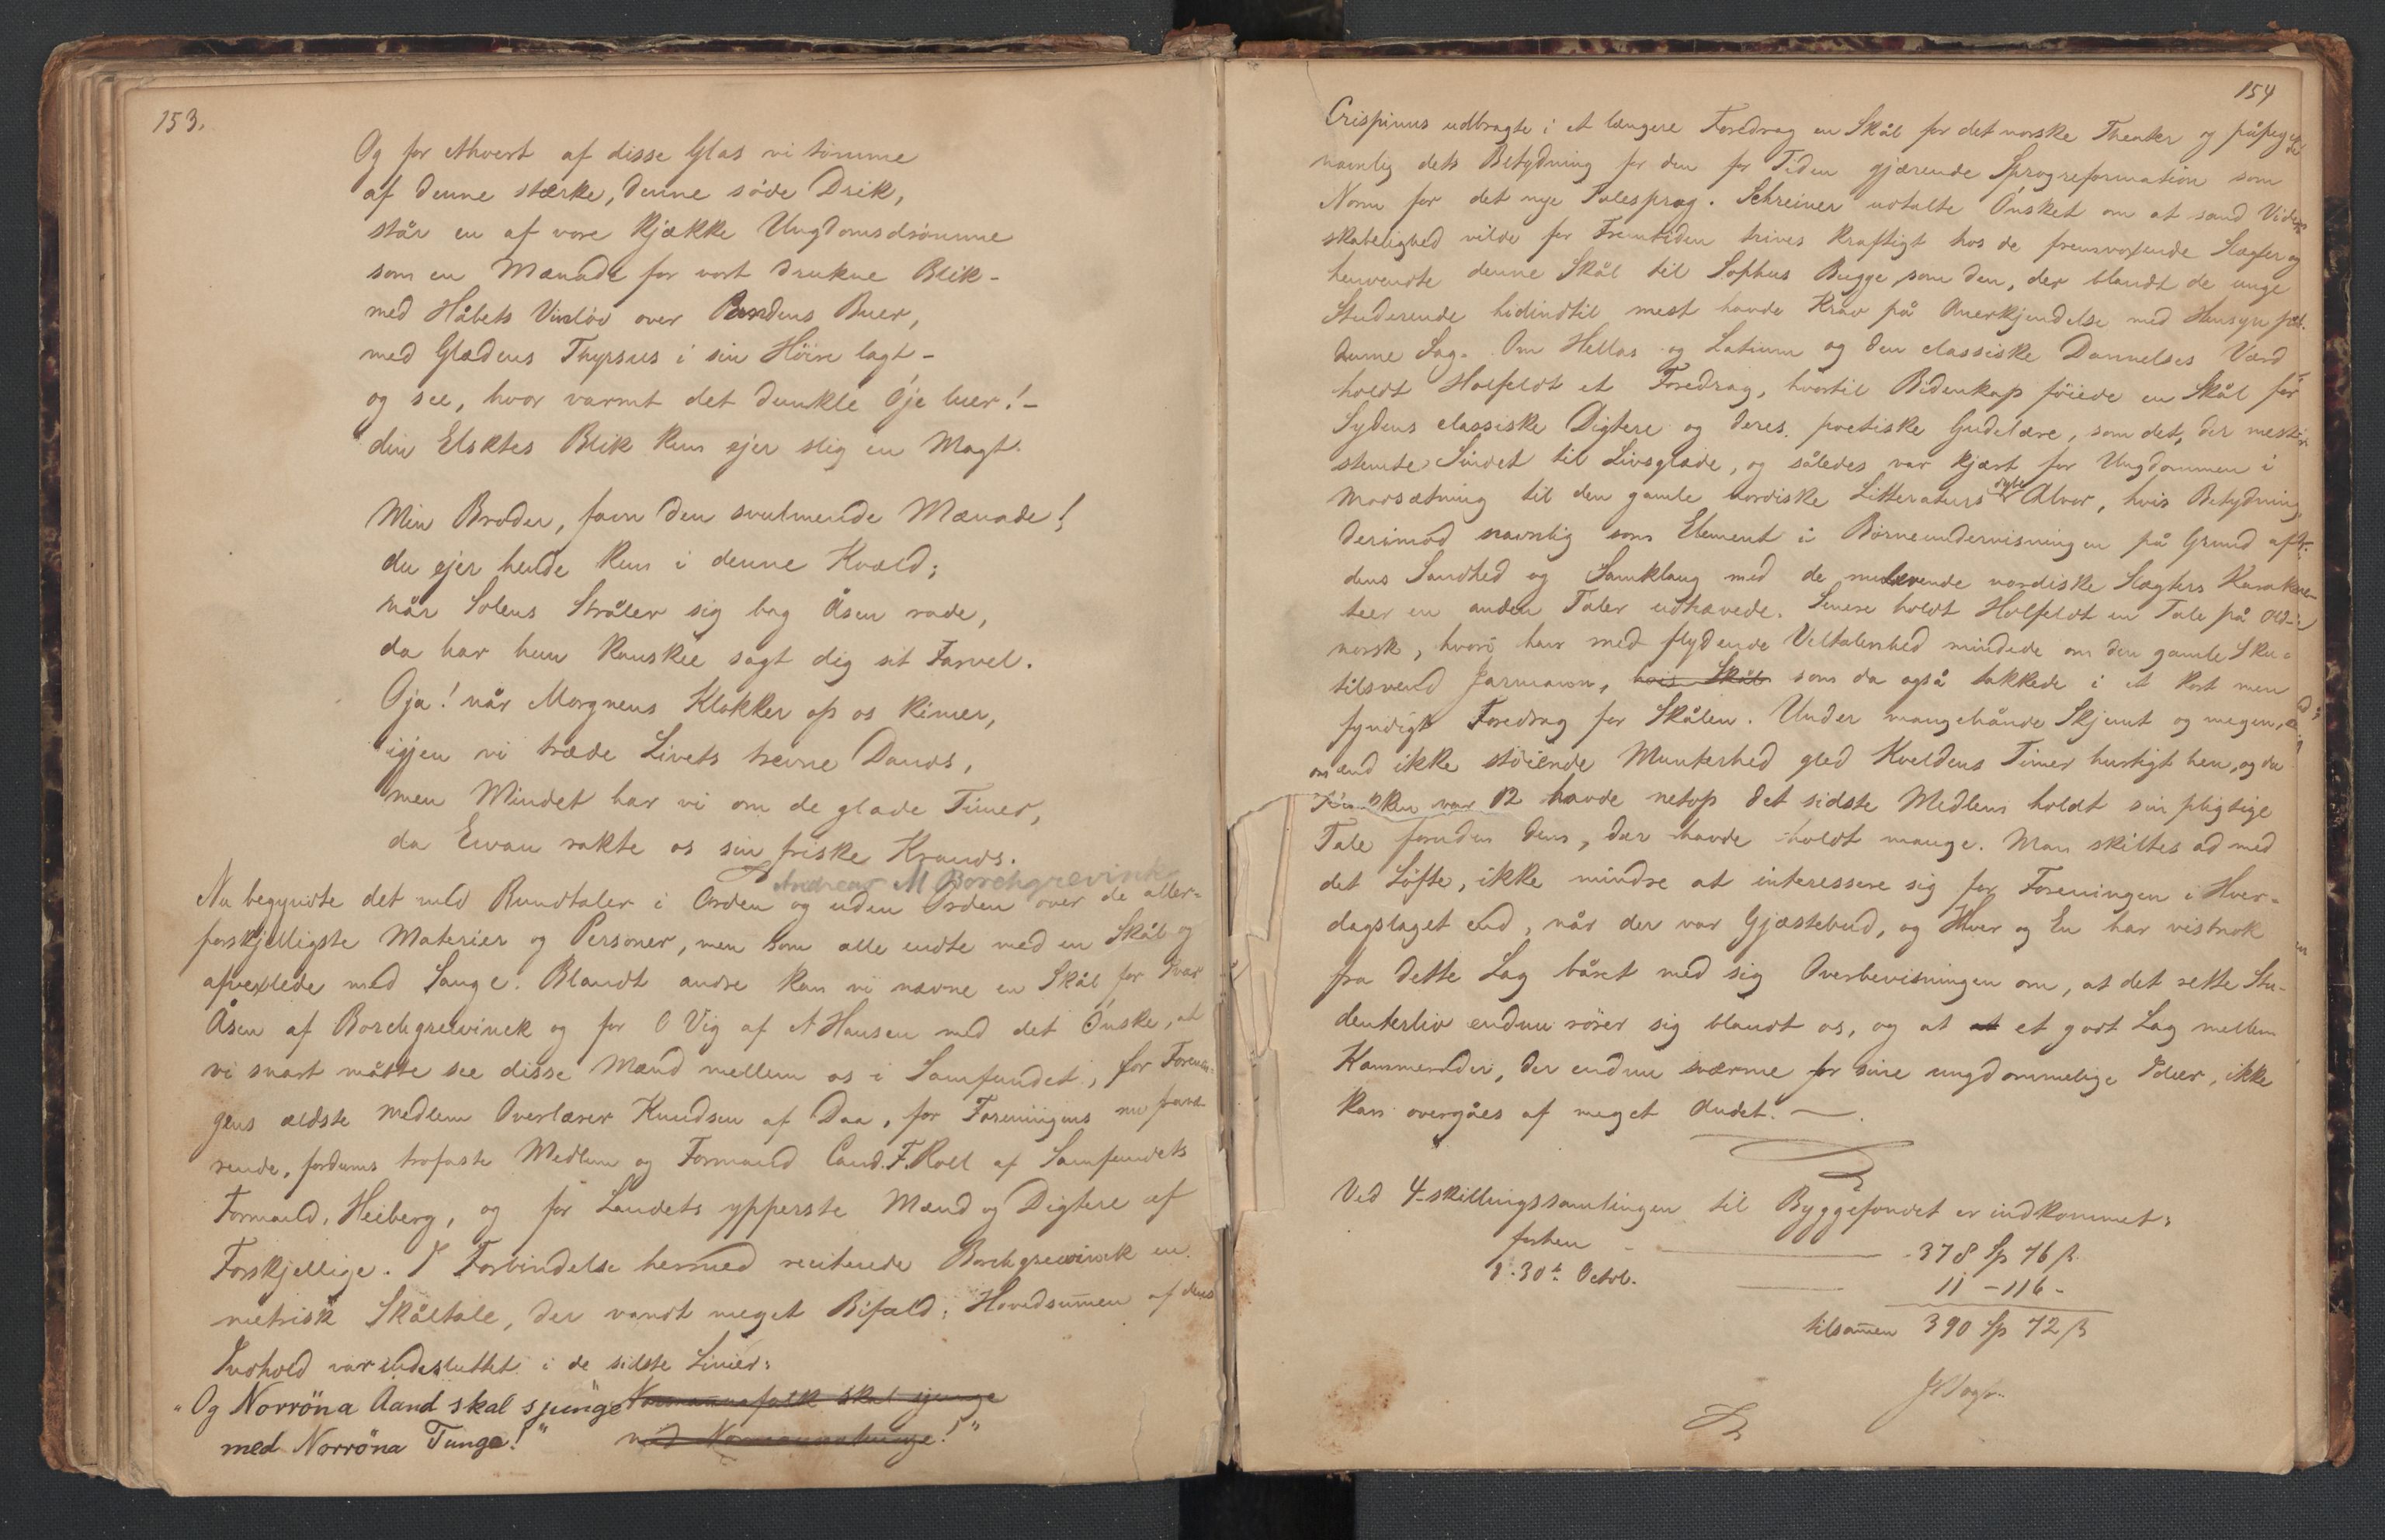 153.
Og for Ahvert af disse Glas vi tømme
af denne stærke, denne søde Drik,
står en af vore kjække Ungdomsdrømme
som en Mænade for vort drukne Blik -
med Håbets Vinløv over Pandens Buer,
med Glædens Thyrsus i sin Höire lagt -
og see, hvor varmt det dunkle Öje luer! -
din Elsktes Blik kun ejer slig en Magt.
Min Broder, favn den svulmende Mænade!
du ejer hende kun i denne Kvæld;
når Solens Stråler sig bag Åsen rade,
da har hun kanskee sagt dig sit Farvel.
Oja! når Morgnens Klokker op os kimer,
igjen vi træde Livets trevne Dands,
men Mindet har vi om de glade Timer,
da Evan rakte os sin friske Krands.
Andreas M Borchgrevink
Nu begyndte det med Rundtaler i Orden og uden Orden over de aller-
forskjelligste Materier og Personer, men som alle endte med en Skål og
afvexlede med Sange. Blandt andre kan vi nævne en Skål for Ivar
Åsen af Borchgrewinck og for O Vig af A Hansen med det Önske, at
vi snart måtte see disse Mænd mellem os i Samfundet, for Forenin-
gens ældste Medlem Overlærer Knudsen af Daa, for Foreningens nu fravæ-
rende, fordums trofaste Medlem og Formand Cand. F. Roll af Samfundets
Formand, Heiberg, og for Landets ypperste Mænd og Digtere af
Forskjellige. I Forbindelse hermed reciterede Borchgrewinck en
metrisk Skåltale, der vandt meget Bifald; Hovedsummen af dens
Indhold var indesluttet i de sidste Linier:
"Og Norröna Aand skal sjunge Normannafolk skal sjunge
med Norröna Tunge!" med Normannatunge!"
154
Crispinus udbragte i et længere Foredrag en Skål for det norske Theater og påpegede
navnlig dets Betydning for den for Tiden gjærende Sprogreformation som
Norm for det nye Talesprog. Schreiner udtalte Önsket om at sand Viden-
skabelighed vilde for Fremtiden trives kraftigt hos de fremvoxende Slægter og
henvendte denne Skål til Sophus Bugge, som den, der blandt de unge
Studerende hidindtil mest havde Krav på Anerkjendelse med Hensyn på
denne Sag. Om Hellas og Latium og den classiske Dannelses Værd
holdt Holfeldt et Foredrag, hvortil Bidenkap föiede en Skål for
Sydens classiske Digtere og deres poetiske Gudelære, som det, der mest
stemte Sindet til Livsglæde, og således var kjært for Ungdommen i
Modsætning til den gamle nordiske Litteraturs dybe Alvor, hvis Betydning
derimod navnlig som Element i Börneundervisningen på Grund af
dens Sandhed og Samklang med de nulevende nordiske Slægters Karak-
teer en anden Taler udhævede. Senere holdt Holfeldt en Tale på Old-
norsk, hvori han med flydende Veltalenhed mindede om den gamle Sku-
tilsvend Jarmann, hvis Skål som da også takkede i et kort men
fyndigt Foredrag for Skålen. Under mangehånde Skjemt og megen,
om end ikke stöiende Munterhed gled Kveldens Timer hurtigt hen, og da
Klokken var 12 havde netop det sidste Medlem holdt sin pligtige
Tale foruden dem, der havde holdt mange. Man skiltes ad med
det Löfte, ikke mindre at interessere sig for Foreningen i Hver-
dagslaget end, når der var Gjæstebud, og Hver og En har vistnok
fra dette Lag båret med sig Overbevisningen om, at det rette Stu-
denterliv endnu rörer sig blandt os, og at at et godt Lag mellem
Kammerader, der endnu sværme for sine ungdommelige Ideer, ikke
kan overgåes af meget Andet. —.
Ved 4-skillingssamlingen til Byggefondet er indkommet:
forhen - 378 Sp 76 β
d. 30te Octob. 11 - 116 -
tilsammen 390 Sp 72 β